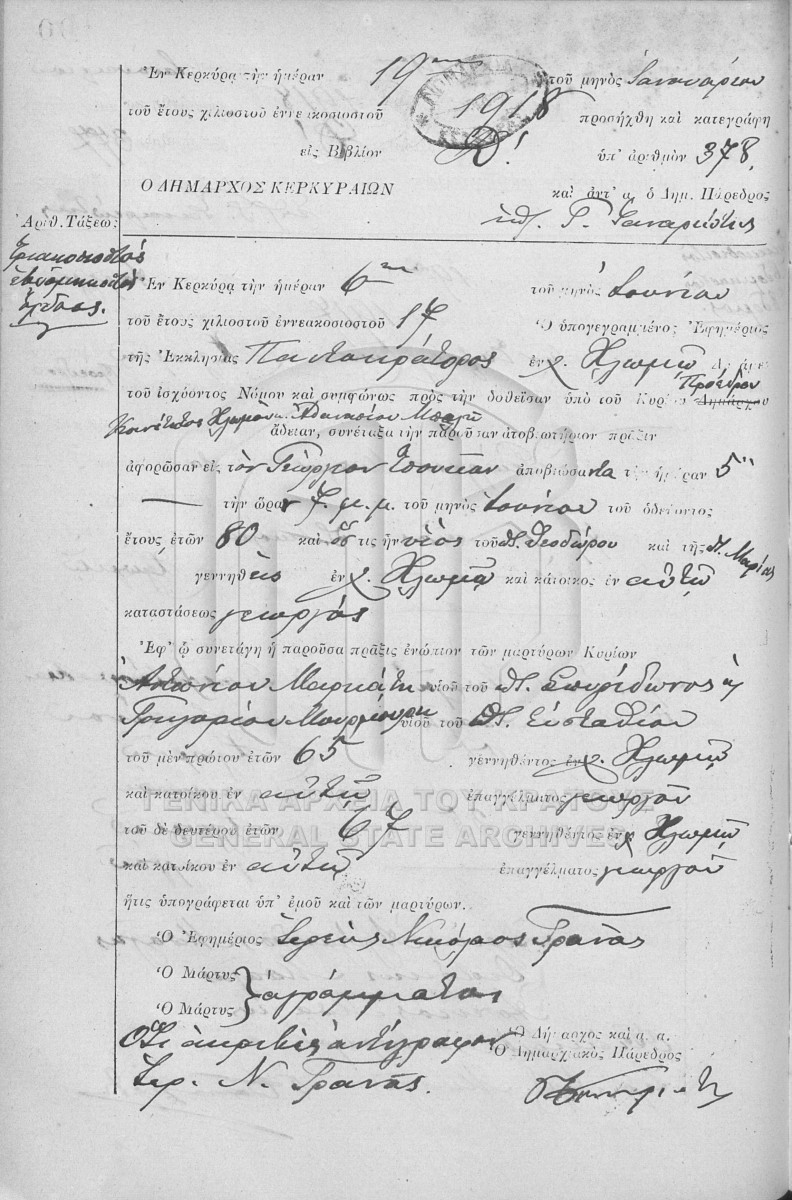 Ἐν Κερκύρᾳ τὴν ἡμέραν 19ην τοῦ μηνὸς Ἰανουαρίου
τοῦ ἔτους χιλιοστοῦ ἐννεακοσιοστοῦ 1918 προσήχθη καὶ κατεγράφη
εἰς Βιβλίον ὑπ' ἀριθμὸν 378,
Ο ΔΗΜΑΡΧΟΣ ΚΕΡΚΥΡΑΙΩΝ καὶ ἀντ' α. ὁ Δημ. Πάρεδρος
Ἀριθ. Τάξεως:
Τριακοσιοστὸς
ἑβδομηκοστὸς
ὄγδοος.
Ἐν Κερκύρᾳ τὴν ἡμέραν 6ην τοῦ μηνὸς Ἰουνίου
τοῦ ἔτους χιλιοστοῦ ἐννεακοσιοστοῦ 17 Ὁ ὑπογεγραμμένος Ἐφημέριος
τῆς Ἐκκλησίας Παντοκράτορος ἐν χ. Χλωμῷ δυνάμει
τοῦ ἰσχύοντος Νόμου καὶ συμφώνως πρὸς τὴν δοθεῖσαν ὑπὸ τοῦ Κυρίου Δημάρχου Προέδρου
Κοινότητος Χλωμοῦ κ. Ἀθανασίου
ἄδειαν, συνέταξα τὴν παροῦσαν ἀποβιωτήριον πρᾶξιν
ἀφορῶσαν εἰς τὸν Γεώργιον ἀποβιώσαντα τὴν ἡμέραν 5ην
τὴν ὥραν 7 μ. μ. τοῦ μηνὸς Ἰουνίου τοῦ ὁδεύοντος
ἔτους, ἐτῶν 80 καὶ ὅς τις ἦν υἱὸς τοῦ π. Θεοδώρου καὶ τῆς π. Μαρίας
γεννηθεὶς ἐν χ. Χλωμῷ καὶ κάτοικος ἐν αὐτῷ
καταστάσεως γεωργὸς
Ἐφ' ᾧ συνετάγη ἡ παροῦσα πρᾶξις ἐνώπιον τῶν μαρτύρων Κυρίων
Ἀντωνίου υἱοῦ τοῦ π. Σπυρίδωνος &
Γρηγορίου υἱοῦ τοῦ π. Εὐσταθίου
τοῦ μὲν πρώτου ἐτῶν 65 γεννηθέντος ἐν χ. Χλωμῷ
καὶ κατοίκου ἐν αὐτῷ ἐπαγγέλματος γεωργοῦ
ΓΕΝΙΚΑ ΑΡΧΕΙΑ ΤΟΥ ΚΡΑΤΟΥΣ
τοῦ δὲ δευτέρου ἐτῶν 67 γεννηθέντος ἐν χ. Χλωμῷ
GENERAL STATE ARCHIVES
καὶ κατοίκου ἐν αὐτῷ ἐπαγγέλματος γεωργοῦ
ἥτις ὑπογράφεται ὑπ' ἐμοῦ καὶ τῶν μαρτύρων.
Ὁ Ἐφημέριος Ἱερεὺς Νικόλαος Γραμμ
Ὁ Μάρτυς } ἀγράμματοι
Ὁ Μάρτυς
Ὅτι ἀκριβὲς ἀντίγραφον Ὁ Δήμαρχος καὶ α. α.
Ὁ Δημαρχιακὸς Πάρεδρος
Ἱερ. Ν.